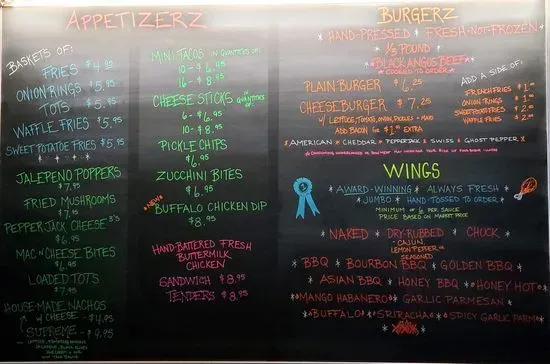 APPETIZERZ
BASKETS OF:
FRIES $4.95
ONION RINGS $5.95
TOTS $5.95
WAFFLE FRIES $5.95
SWEET POTATOE FRIES $5.95
JALEPENO POPPERS
$7.95
FRIED MUSHROOMS
$7.95
PEPPERJACK CHEESE B'S
$6.95
MAC N CHEESE BITES
$6.95
LOADED TOTS
$7.95
HOUSE-MADE NACHOS
w/ CHEESE - $4.95
SUPREME - $9.95
MINI TACOS IN QUANTITIES OF:
10 - $6.45
16 - $8.95
CHEESE STICKS IN QUANTITIES OF:
6 - $6.95
10 - $8.95
PICKLE CHIPS
$6.95
ZUCCHINI BITES
$6.95
*NEW*
BUFFALO CHICKEN DIP
$8.95
HAND-BATTERED FRESH
BUTTERMILK
CHICKEN
SANDWICH $8.95
TENDERS $8.95
BURGERZ
* HAND-PRESSED * FRESH-NOT-FROZEN
* 1/3 POUND *
* BLACK ANGUS BEEF *
* COOKED TO ORDER *
PLAIN BURGER $6.25
CHEESEBURGER $7.25
w/ LETTUCE, TOMATO, ONION, PICKLES + MAYO
ADD BACON for $1.00 EXTRA
ADD A SIDE OF:
FRENCH FRIES
ONION RINGS
SWEET POTATO FRIES
WAFFLE FRIES
* AMERICAN * CHEDDAR * PEPPERJACK * SWISS * GHOST PEPPER *
WINGS
* AWARD-WINNING * ALWAYS FRESH *
* JUMBO * HAND-TOSSED TO ORDER *
MINIMUM OF 6 PER SAUCE
PRICE BASED ON MARKET PRICE
* NAKED * DRY-RUBBED * CHUCK *
- CAJUN
LEMON PEPPER OR
SEASONED
* BBQ * BOURBON BBQ * GOLDEN BBQ *
* ASIAN BBQ * HONEY BBQ * HONEY HOT *
* MANGO HABANERO * GARLIC PARMESAN *
* BUFFALO * SRIRACHA * SPICY GARLIC PARM *